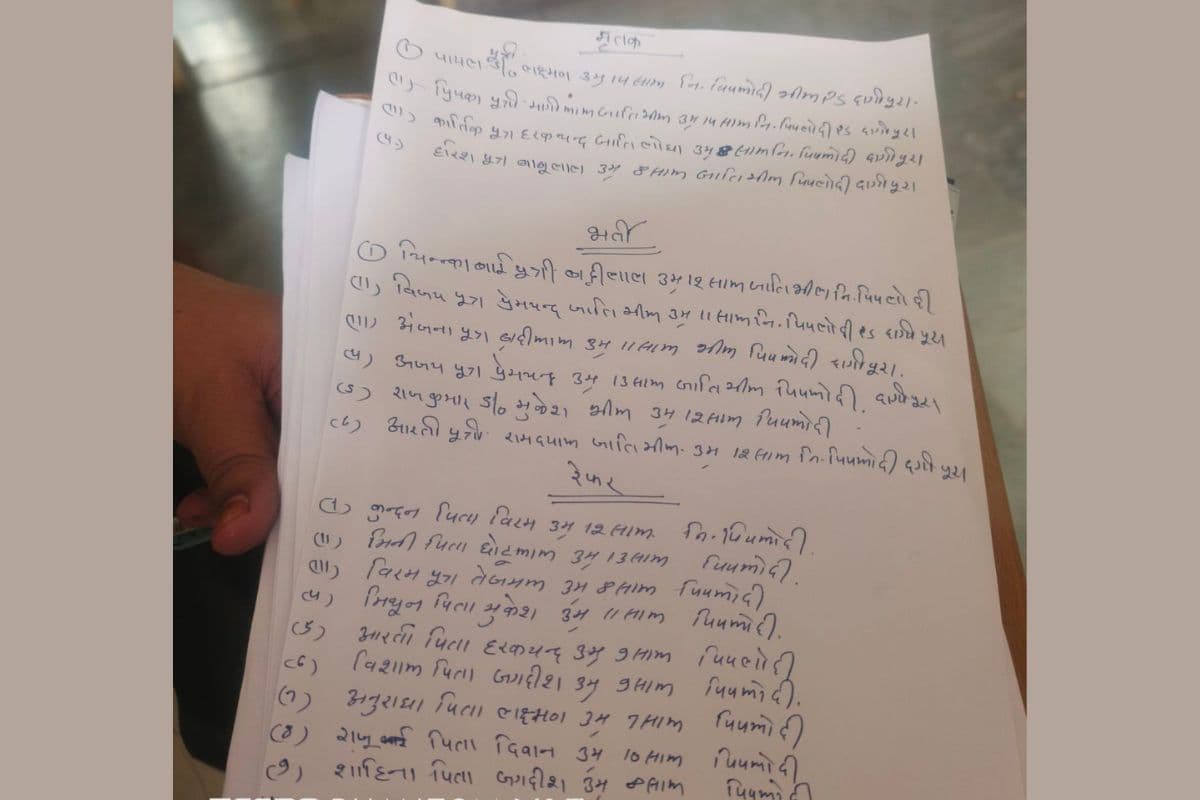 मृतक
(1) पायल पुत्री D/o लक्ष्मण उम्र 14 साल नि. पिपलोदी भील PS दांगीपुरा.
(11) प्रियंका पुत्री मांगीलाल जाति भील उम्र 14 साल नि. पिपलोदी PS दांगीपुरा
(111) कार्तिक पुत्र हरकचन्द जाति लोधा उम्र 8 साल नि. पिपलोदी दांगीपुरा
(4) हरिश पुत्र बाबूलाल उम्र 8 साल जाति भील पिपलोदी दांगीपुरा
भर्ती
(1) बाई पुत्री बद्रीलाल उम्र 12 साल जाति भील नि. पिपलोदी
(11) विजय पुत्र प्रेमचन्द जाति भील उम्र 11 साल नि. पिपलोदी PS दांगीपुरा
(111) अंजना पुत्र बद्रीलाल उम्र 11 साल भील पिपलोदी दांगीपुरा.
(4) अजय पुत्र प्रेमचन्द उम्र 13 साल जाति भील पिपलोदी. दांगीपुरा
(5) राजकुमार S/o मुकेश भील उम्र 12 साल पिपलोदी
(6) आरती पुत्री रामदयाल जाति भील. उम्र 12 साल नि. पिपलोदी दांगीपुरा
रेफर
(1) कुन्दन पिता विरम उम्र 12 साल नि. पिपलोदी.
(11) मिनी पिता छोटूलाल उम्र 13 साल पिपलोदी.
(111) विरम पुत्र तेजमल उम्र 8 साल पिपलोदी
(4) मिथून पिता मुकेश उम्र 11 साल पिपलोदी.
(5) आरती पिता हरकचन्द उम्र 9 साल पिपलोदी
(6) विशाल पिता जगदीश उम्र 9 साल पिपलोदी.
(7) अनुराधा पिता लक्ष्मण उम्र 7 साल पिपलोदी
(8) राजू पिता दिवान उम्र 10 साल पिपलोदी
(9) शाहिना पिता जगदीश उम्र 8 साल पिपलोदी